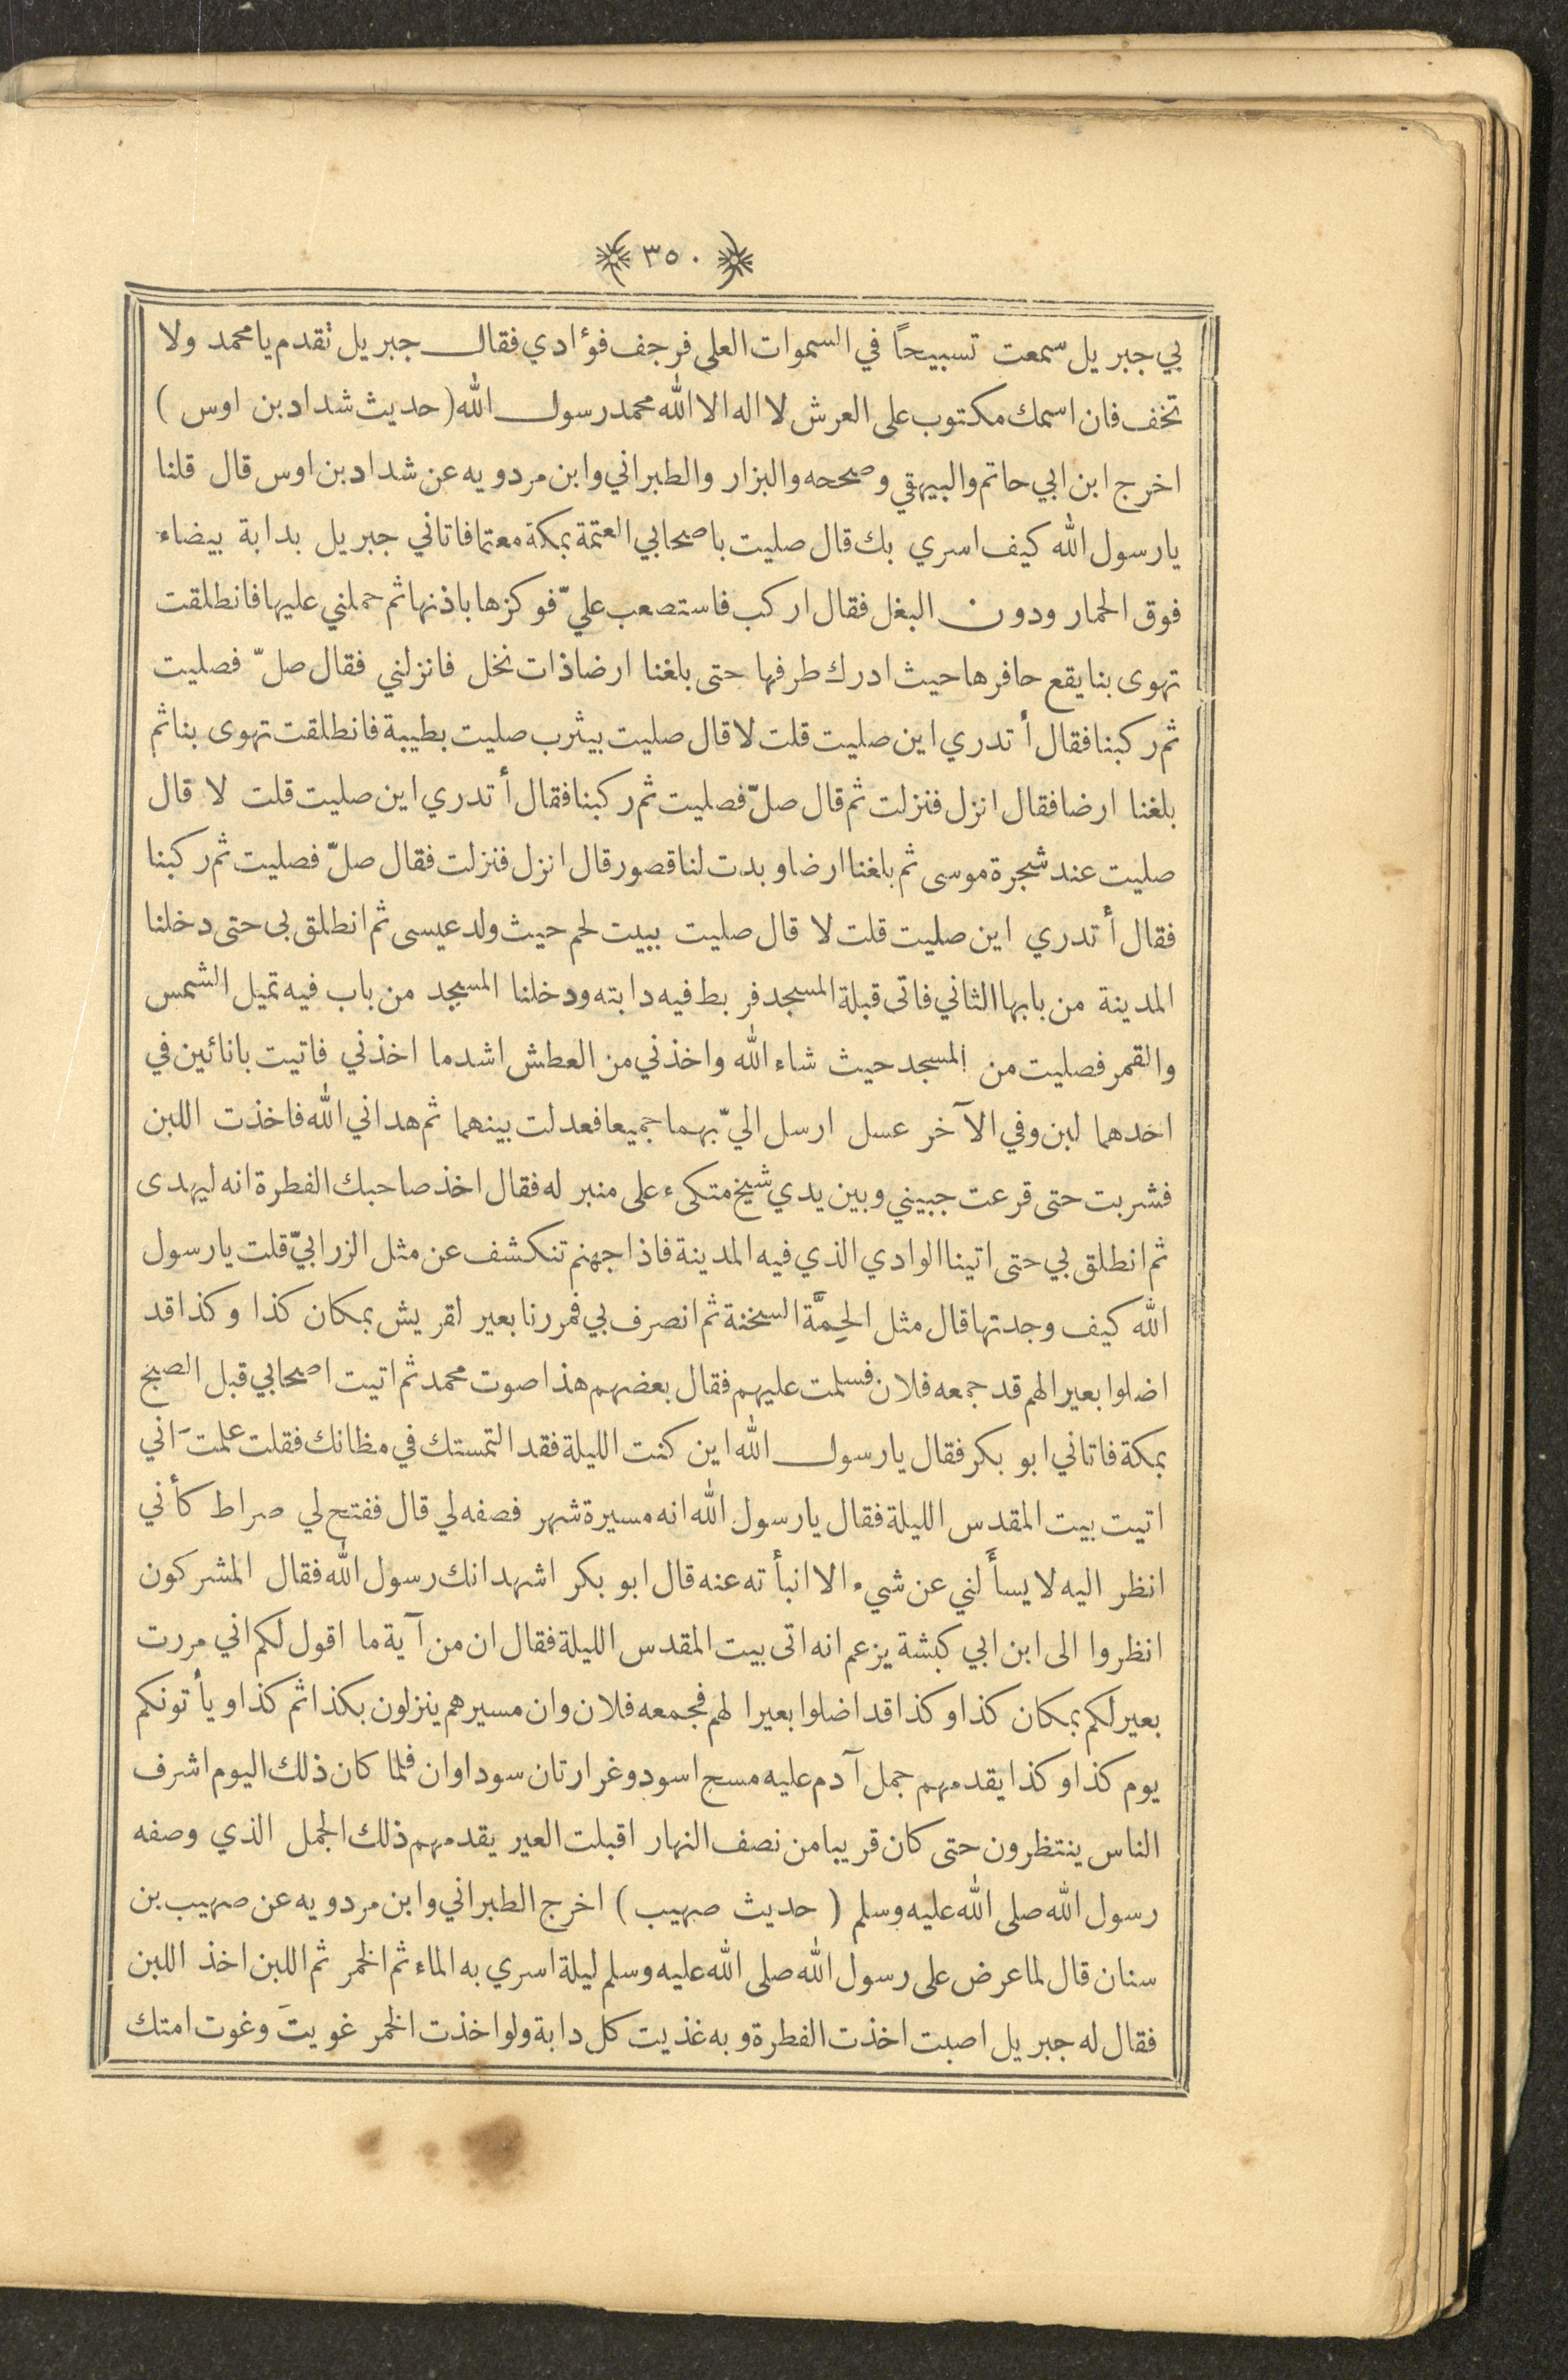 ٣٥٠
بي جبريل سمعت تسبيحاً في السموات العلى فرجف فؤادي فقال جبريل تقدم يا محمد ولا
تخف فان اسمك مكتوب على العرش لا اله الا الله محمد رسول الله (حديث شداد بن اوس)
اخرج ابن ابي حاتم والبيهقي وصححه والبزار والطبراني وابن مردويه عن شداد بن اوس قال قلنا
يا رسول الله كيف اسري بك قال صليت باصحابي العتمة بمكة معتما فاتاني جبريل بدابة بيضاء
فوق الحمار ودون البغل فقال اركب فاستصعب عليّ فوكزها باذنها ثم حملني عليها فانطلقت
تهوى بنا يقع حافرها حيث ادرك طرفها حتى بلغنا ارضا ذات نخل فانزلني فقال صلّ فصليت
ثم ركبنا فقال أتدري اين صليت قلت لا قال صليت بيثرب صليت بطيبة فانطلقت تهوى بنا ثم
بلغنا ارضا فقال انزل فنزلت ثم قال صلّ فصليت ثم ركبنا فقال أتدري اين صليت قلت لا قال
صليت عند شجرة موسى ثم بلغنا ارضا وبدت لنا قصور قال انزل فنزلت فقال صلّ فصليت ثم ركبنا
فقال أتدري اين صليت قلت لا قال صليت ببيت لحم حيث ولد عيسى ثم انطلق بى حتى دخلنا
المدينة من بابها الثاني فاتى قبلة المسجد فربط فيه دابته ودخلنا المسجد من باب فيه تميل الشمس
والقمر فصليت من المسجد حيث شاء الله واخذني من العطش اشد ما اخذني فاتيت بانائين في
احدهما لبن وفي الآخر عسل ارسل اليّ بهما جميعا فعدلت بينهما ثم هداني الله فاخذت اللبن
فشربت حتى قرعت جبيني وبين يدي شيخ متكىء على منبر له فقال اخذ صاحبك الفطرة انه ليهدى
ثم انطلق بي حتى اتينا الوادي الذي فيه المدينة فاذا جهنم تنكشف عن مثل الزرابيّ قلت يا رسول
الله كيف وجدتها قال مثل الحِمَّة السخنة ثم انصرف بي فمررنا بعير لقريش بمكان كذا وكذا قد
اضلوا بعيرا لهم قد جمعه فلان فسلمت عليهم فقال بعضهم هذا صوت محمد ثم اتيت اصحابي قبل الصبح
بمكة فاتاني ابو بكر فقال يا رسول الله اين كنت الليلة فقد التمستك في مظانك فقلت علمتَ اني
اتيت بيت المقدس الليلة فقال يا رسول الله انه مسيرة شهر فصفه لي قال ففتح لي صراط كأني
انظر اليه لا يسأَلني عن شيء الا انبأته عنه قال ابو بكر اشهد انك رسول الله فقال المشركون
انظروا الى ابن ابي كبشة يزعم انه اتى بيت المقدس الليلة فقال ان من آية ما اقول لكم اني مررت
بعير لكم بمكان كذا وكذا قد اضلوا بعيرا لهم فجمعه فلان وان مسيرهم ينزلون بكذا ثم كذا ويأتونكم
يوم كذا وكذا يقدمهم جمل آدم عليه مسح اسود وغرارتان سوداوان فلما كان ذلك اليوم اشرف
الناس ينتظرون حتى كان قريبا من نصف النهار اقبلت العير يقدمهم ذلك الجمل الذي وصفه
رسول الله صلى الله عليه وسلم (حديث صهيب) اخرج الطبراني وابن مردويه عن صهيب بن
سنان قال لما عرض على رسول الله صلى الله عليه وسلم ليلة اسري به الماء ثم الخمر ثم اللبن اخذ اللبن
فقال له جبريل اصبت اخذت الفطرة وبه غذيت كل دابة ولو اخذت الخمر غويتَ وغوت امتك